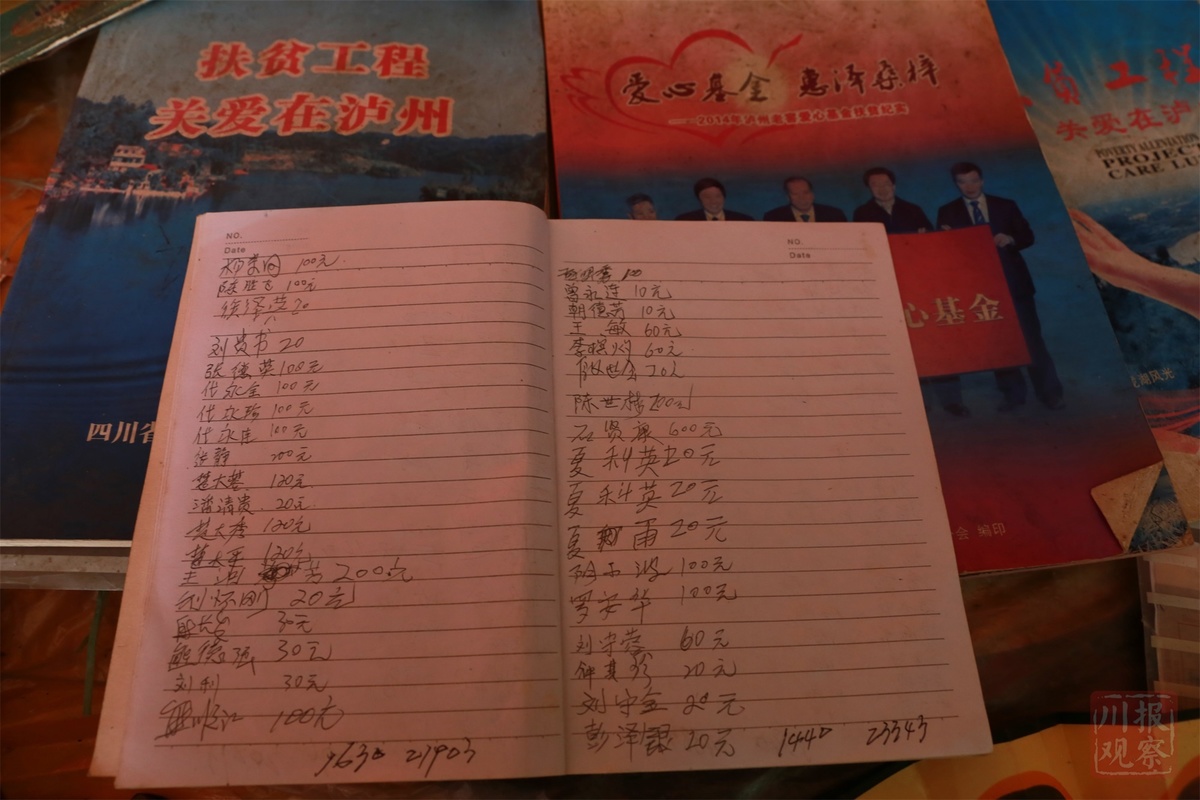 扶贫工程
关爱在泸州
四川省
爱心基金 惠泽桑梓
——2014年泸州老窖爱心基金扶贫纪实
心基金
会 编印
贫 工程
关爱在泸
POVERTY ALLEVIATION
PROJECT
CARE LU
湖风光
NO.
Date
100元
陈胜飞 100元
20
刘英书 20
张德英 100元
代永全 100元
代永珍 100元
代永佳 100元
张静 200元
楚大 120元
潘清贵 20元
楚大秀 120元
楚大平 120元
王 芳 200元
刘怀刚 20元
30元
熊德强 30元
刘利 30元
100元
1630 21903
NO.
Date
100
曾永连 10元
胡德芳 10元
王 敏 60元
李 60元
世 20元
陈世 200元
石贤 600元
夏科英 20元
夏科英 20元
夏 雨 20元
波 100元
罗安华 100元
刘守蓉 60元
钟其珍 20元
刘守全 20元
彭泽银 20元
1440 23343
川报
观察